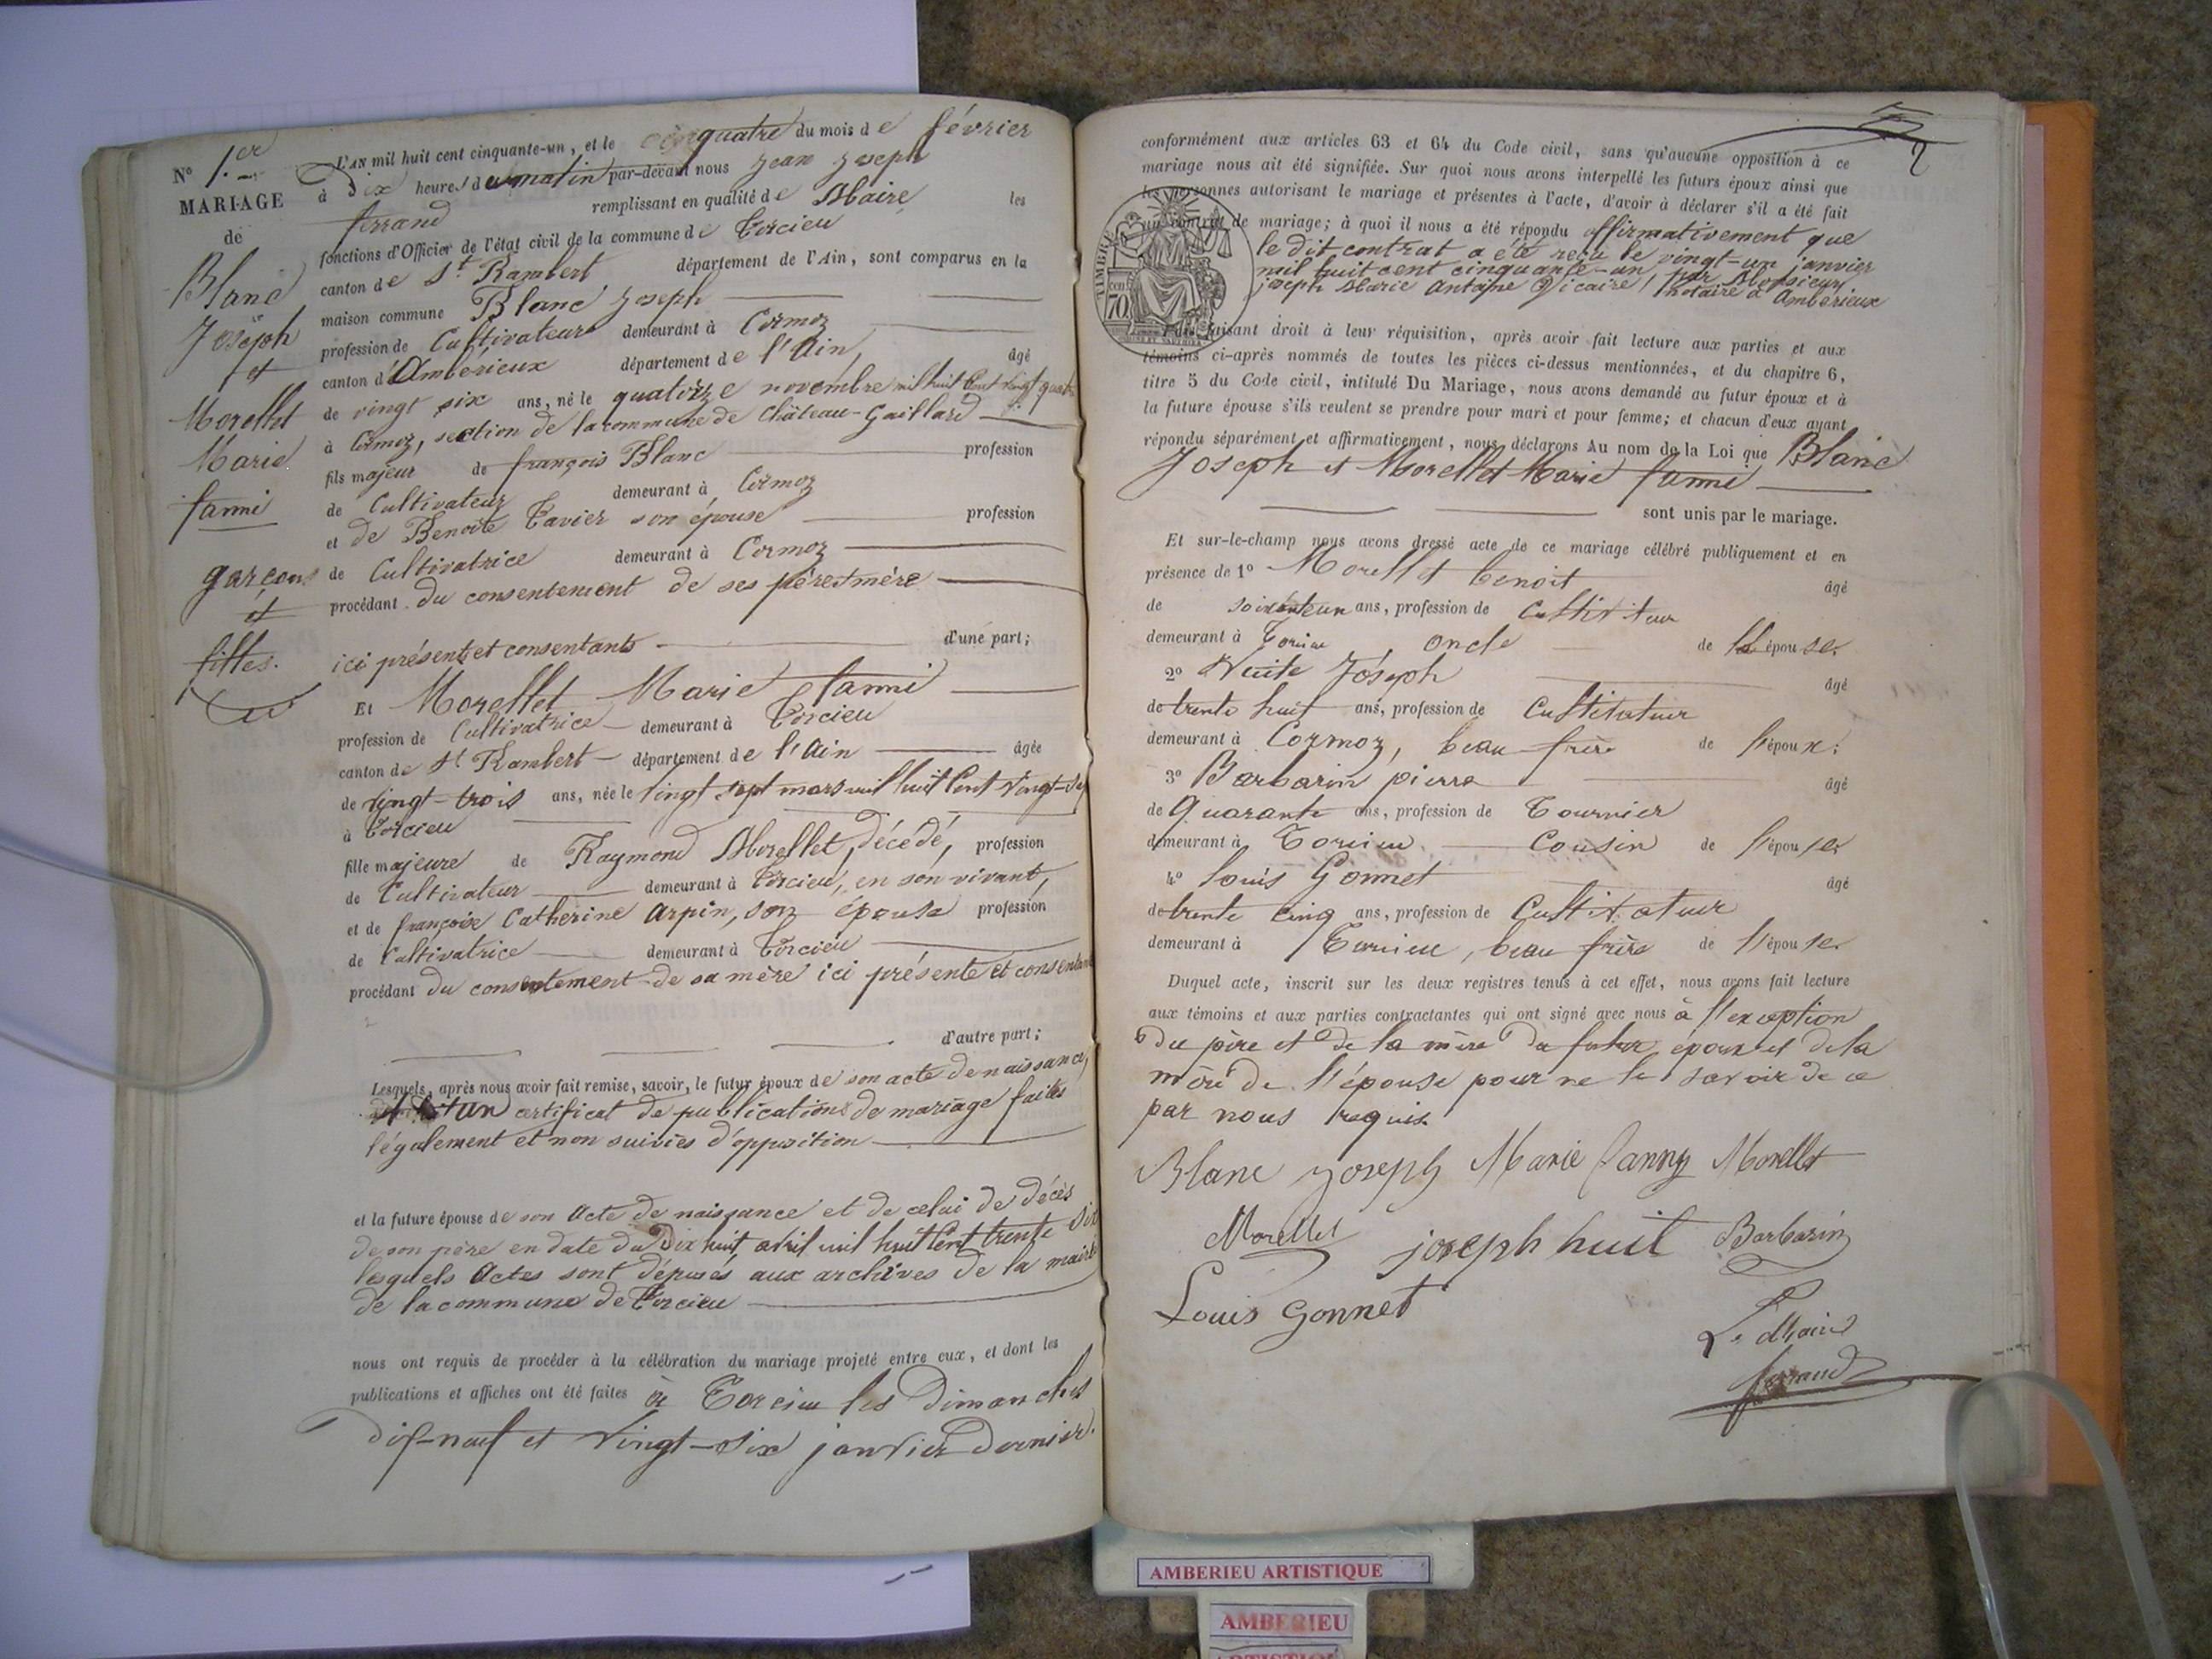 N° 1.er
MARIAGE
de
Blanc
Joseph
et
Morellet
Marie
fanni
garçons
et
filles.
L'AN mil huit cent cinquante-un, et le quatre du mois de février
à Dix heures du matin par-devant nous Jean Joseph
ferrand remplissant en qualité de Maire les
fonctions d'Officier de l'état civil de la commune de Torcieu
canton de St Rambert département de l'Ain, sont comparus en la
maison commune Blanc Joseph
profession de Cultivateur demeurant à Cormoz
canton d'Ambérieux département de l'Ain, âgé
de vingt six ans, né le quatorze novembre mil huit Cent vingt quatre
à Cormoz, section de la commune de Château-Gaillard
fils majeur de françois Blanc profession
de Cultivateur demeurant à Cormoz
et de Benoite Tavier son épouse profession
de Cultivatrice demeurant à Cormoz
procédant du consentement de ses père et mère
ici présents et consentants d'une part;
Et Morellet Marie fanni
profession de Cultivatrice demeurant à Torcieu
canton de St Rambert département de l'Ain âgée
de vingt-trois ans, née le vingt sept mars mil huit Cent vingt-sept
à Torcieu
fille majeure de Raymond Morellet, décédé, profession
de Cultivateur demeurant à Torcieu, en son vivant,
et de françoise Catherine Arpin, son épouse profession
de Cultivatrice demeurant à Torcieu
procédant du consentement de sa mère ici présente et consentante
d'autre part;
Lesquels, après nous avoir fait remise, savoir, le futur époux de son acte de naissance,
et un certificat de publications de mariage faites
légalement et non suivies d'opposition
et la future épouse de son Acte de naissance et de celui de décès
de son père en date du Dix huit avril mil huit Cent trente six
lesquels Actes sont déposés aux archives de la mairie
de la commune de Torcieu
nous ont requis de procéder à la célébration du mariage projeté entre eux, et dont les
publications et affiches ont été faites à Torcieu les Dimanches
dix-neuf et vingt-six janvier dernier.
2
conformément aux articles 63 et 64 du Code civil, sans qu'aucune opposition à ce
mariage nous ait été signifiée. Sur quoi nous avons interpellé les futurs époux ainsi que
les personnes autorisant le mariage et présentes à l'acte, d'avoir à déclarer s'il a été fait
un contrat de mariage; à quoi il nous a été répondu affirmativement que
le dit contrat a été reçu le vingt-un janvier
mil huit cent cinquante-un, par Monsieur
joseph Marie Antoine Vicaire, notaire à Ambérieux
TIMBRE
70
faisant droit à leur réquisition, après avoir fait lecture aux parties et aux
témoins ci-après nommés de toutes les pièces ci-dessus mentionnées, et du chapitre 6,
titre 5 du Code civil, intitulé Du Mariage, nous avons demandé au futur époux et à
la future épouse s'ils veulent se prendre pour mari et pour femme; et chacun d'eux ayant
répondu séparément et affirmativement, nous déclarons Au nom de la Loi que Blanc
Joseph et Morellet Marie fanni
sont unis par le mariage.
Et sur-le-champ nous avons dressé acte de ce mariage célébré publiquement et en
présence de 1° Morellet benoit âgé
de soixante un ans, profession de Cultivateur
demeurant à Torcieu, oncle de l'épouse.
2° Joseph âgé
de trente huit ans, profession de Cultivateur
demeurant à Cormoz, beau frère de l'époux.
3° Barbarin pierre âgé
de Quarante ans, profession de Tournier
demeurant à Torcieu Cousin de l'épouse
4° louis Gonnet âgé
de trente cinq ans, profession de Cultivateur
demeurant à Torcieu, beau frère de l'épouse
Duquel acte, inscrit sur les deux registres tenus à cet effet, nous avons fait lecture
aux témoins et aux parties contractantes qui ont signé avec nous à l'exception
du père et de la mère du futur époux et de la
mère de l'épouse pour ne le savoir de ce
par nous requis.
Blanc joseph Marie fanny Morellet
Morellet joseph huit Barbarin
Louis Gonnet
Le Maire
ferrand
AMBERIEU ARTISTIQUE
AMBERIEU
ARTISTIQUE